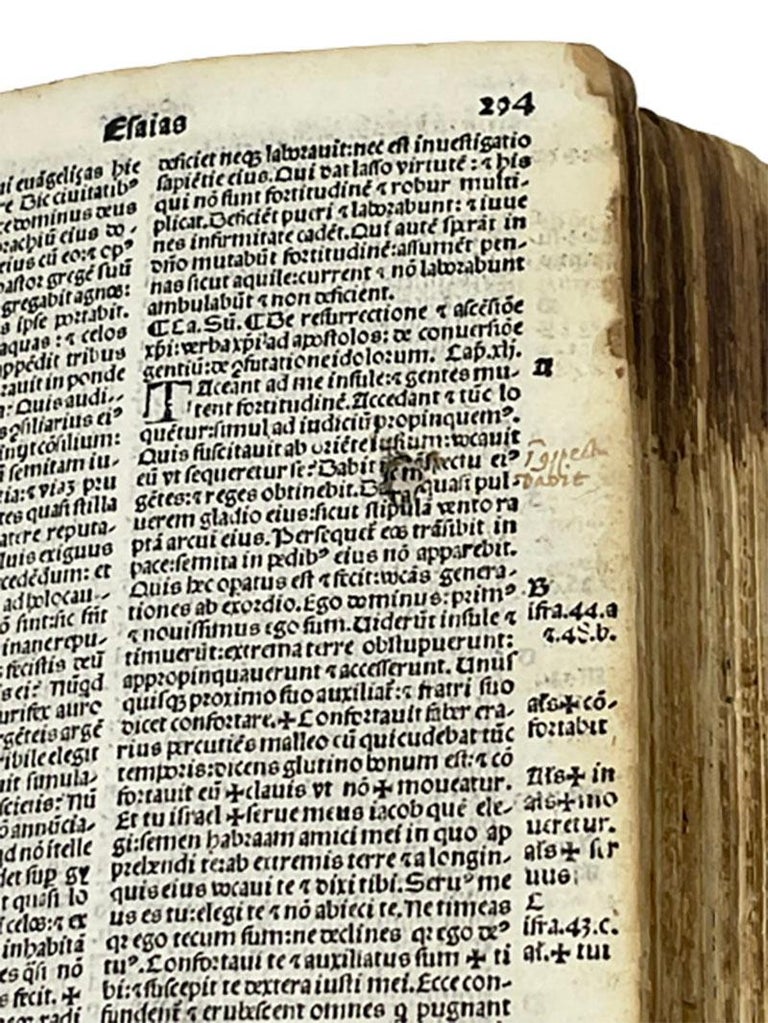 Esaias
294
ui euāgelisas hie
re Dic ciuitatibꝰ
ce dominus deus
rachiū eius do-
eius cū eo: ⁊ opꝰ
pastor gregē suū
gregabit agnos:
s ipse portabit.
aquas: ⁊ celos
appēdit tribus
rauit in ponde
Quis audi-
ꝯsiliarius eiꝰ
inijt cōsilium:
semitam iu-
tia: ⁊ viaꝫ pru
tes quasi stilla
atere reputa-
Quis exiguus
cedēdum: et
ad holocau-
ō sunt: sic sūt
inane repu-
fecistis deū
Nūqd
urifex auro
rgēteis argē
ribile elegit
uit simula-
scietis: Nū
ō annūcia-
qd nō itelle
det sup gy
t quasi lo
celos: ⁊ ex
inhabitā
es q̄si nō
s fecit. ✚
radi
deficiet neqꝫ laborauit: nec est inuestigatio
sapiētie eius. Qui dat lasso virtutē: ⁊ his
qui nō sunt fortitudinē ⁊ robur multi-
plicat. Deficiēt pueri ⁊ laborabunt: ⁊ iuue
nes infirmitate cadēt. Qui autē sꝑāt in
dn̄o mutabūt fortitudinē: assumēt pen-
nas sicut aquile: current ⁊ nō laborabunt
ambulabūt ⁊ non deficient.
¶ La. Sū. ¶ De resurrectione ⁊ ascēsiōe
xp̄i: verba xp̄i ad apostolos: de conuersiōe
gentiū: de ꝯfutatione idolorum. Cap. xlj.
TAceant ad me insule: ⁊ gentes mu-
tent fortitudinē. Accedant ⁊ tūc lo
quētur: simul ad iudiciū propinquemꝰ.
Quis suscitauit ab oriēte iustum: vocauit
eū vt sequeretur se? Dabit in ꝯspectu eiꝰ
gētes: ⁊ reges obtinebit. Da quasi pul-
uerem gladio eius: sicut stipulā vento ra
ptā arcui eius. Persequet̄ eos trāsibit in
pace: semita in pedibꝰ eius nō apparebit.
Quis hec opatus est ⁊ fecit: vocās genera-
tiones ab exordio. Ego dominus: primꝰ
⁊ nouissimus ego sum. Uiderūt insule ⁊
timuerūt: extrema terre obstupuerunt:
appropinquauerunt ⁊ accesserunt. Unus
quisqꝫ proximo suo auxiliat̄: ⁊ fratri suo
dicet confortare. ✚ Confortauit faber era-
rius percutiēs malleo eū qui cudebat tūc
temporis: dicens glutino bonum est: ⁊ cō
fortauit eū ✚ clauis vt nō ✚ moueatur.
Et tu israel ✚ serue meus iacob quē ele-
gi: semen habraam amici mei in quo ap
prehendi te: ab extremis terre ⁊ a longin-
quis eius vocaui te ⁊ dixi tibi. Seruꝰ me
us es tu: elegi te ⁊ nō abieci te. Ne timeas
qꝛ ego tecum sum: ne declines qꝛ ego deꝰ
tuꝰ. Confortaui te ⁊ auxiliatus sum ✚ ti
bi: ⁊ suscepit te dextera iusti mei. Ecce con-
fundent̄ ⁊ erubescent omnes q pugnant
A
ī ꝯspectu
dabit
B
ifra. 44. a
⁊. 48. b.
als ✚ cō-
fortabit
Als ✚ in
als ✚ mo
ueretur.
als ✚ ser
uus:
C
ifra. 43. c.
al. ✚ tui